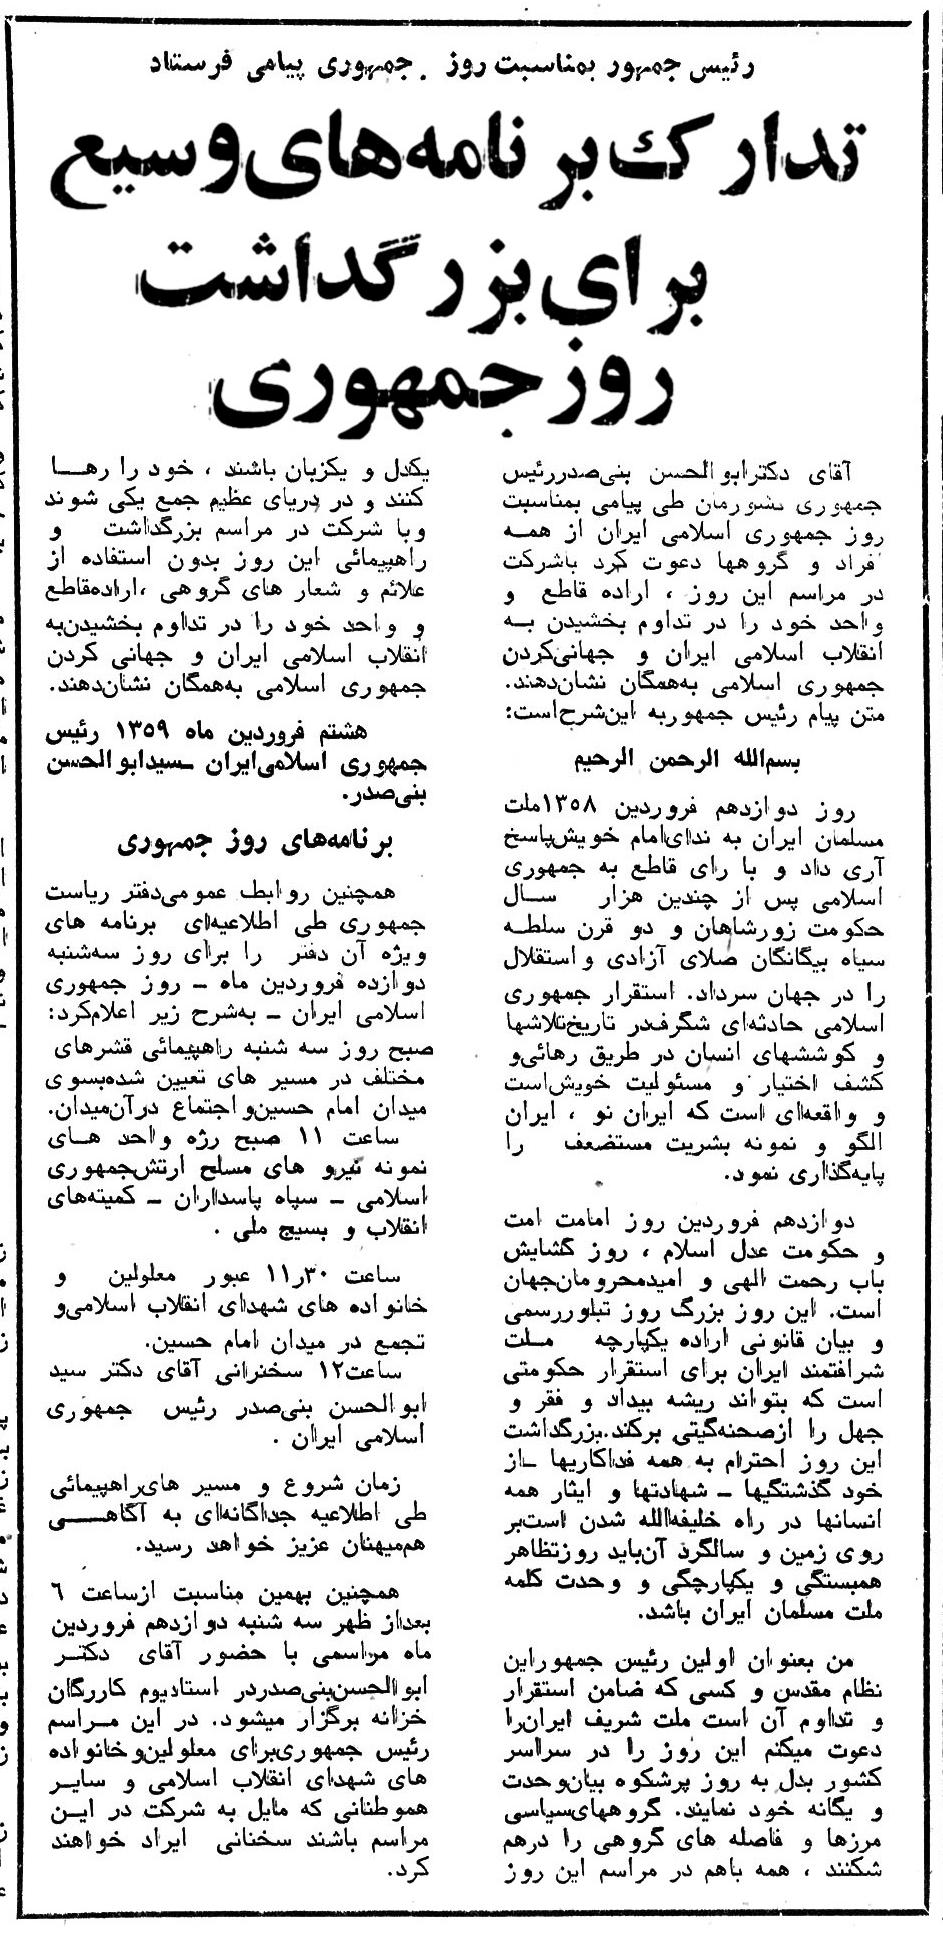 رئیس جمهور بمناسبت روز جمهوری پیامی فرستاد
تدارک برنامه‌های وسیع
برای بزرگداشت
روز جمهوری
آقای دکتر ابوالحسن بنی‌صدر رئیس
جمهوری کشورمان طی پیامی بمناسبت
روز جمهوری اسلامی ایران از همه
افراد و گروهها دعوت کرد باشرکت
در مراسم این روز ، اراده قاطع و
واحد خود را در تداوم بخشیدن به
انقلاب اسلامی ایران و جهانی‌کردن
جمهوری اسلامی به‌همگان نشان‌دهند.
متن پیام رئیس جمهوربه این‌شرح‌است:
بسم‌الله الرحمن الرحیم
روز دوازدهم فروردین ۱۳۵۸ملت
مسلمان ایران به ندای‌امام خویش‌پاسخ
آری داد و با رای قاطع به جمهوری
اسلامی پس از چندین هزار سال
حکومت زورشاهان و دو قرن سلطه
سیاه بیگانگان صلای آزادی و استقلال
را در جهان سرداد. استقرار جمهوری
اسلامی حادثه‌ای شگرفدر تاریخ‌تلاشها
و کوششهای انسان در طریق رهائی‌و
کشف اختیار و مسئولیت خویش‌است
و واقعه‌ای است که ایران نو ، ایران
الگو و نمونه بشریت مستضعف را
پایه‌گذاری نمود.
دوازدهم فروردین روز امامت امت
و حکومت عدل اسلام ، روز گشایش
باب رحمت الهی و امیدمحرومان‌جهان
است. این روز بزرگ روز تبلوررسمی
و بیان قانونی اراده یکپارچه ملت
شرافتمند ایران برای استقرار حکومتی
است که بتواند ریشه بیداد و فقر و
جهل را ازصحنه‌گیتی برکند.بزرگداشت
این روز احترام به همه فداکاریها ـ از
خود گذشتگیها ـ شهادتها و ایثار همه
انسانها در راه خلیفه‌الله شدن است‌بر
روی زمین و سالگرد آن‌باید روزتظاهر
همبستگی و یکپارچگی و وحدت کلمه
ملت مسلمان ایران باشد.
من بعنوان اولین رئیس جمهوراین
نظام مقدس و کسی که ضامن استقرار
و تداوم آن است ملت شریف ایران‌را
دعوت میکنم این روز را در سراسر
کشور بدل به روز پرشکوه بیان‌وحدت
و یگانه خود نمایند. گروههای‌سیاسی
مرزها و فاصله های گروهی را درهم
شکنند ، همه باهم در مراسم این روز
یکدل و یکزبان باشند ، خود را رها
کنند و در دریای عظیم جمع یکی شوند
وبا شرکت در مراسم بزرگداشت و
راهپیمائی این روز بدون استفاده از
علائم و شعار های گروهی ،اراده‌قاطع
و واحد خود را در تداوم بخشیدن‌به
انقلاب اسلامی ایران و جهانی کردن
جمهوری اسلامی به‌همگان نشان‌دهند.
هشتم فروردین ماه ۱۳۵۹ رئیس
جمهوری اسلامی‌ایران ـسیدابوالحسن
بنی‌صدر.
برنامه‌های روز جمهوری
همچنین روابط عمومی‌دفتر ریاست
جمهوری طی اطلاعیه‌ای برنامه های
ویژه آن دفتر را برای روز سه‌شنبه
دوازده فروردین ماه ـ روز جمهوری
اسلامی ایران ـ به‌شرح زیر اعلام‌کرد:
صبح روز سه شنبه راهپیمائی قشرهای
مختلف در مسیر های تعیین شده‌بسوی
میدان امام حسین‌و اجتماع درآن‌میدان.
ساعت ۱۱ صبح رژه واحد های
نمونه نیرو های مسلح ارتش‌جمهوری
اسلامی ـ سپاه پاسداران ـ کمیته‌های
انقلاب و بسیج ملی .
ساعت ۱۱٫۳۰ عبور معلولین و
خانواده های شهدای انقلاب اسلامی‌و
تجمع در میدان امام حسین.
ساعت۱۲ سخنرانی آقای دکتر سید
ابوالحسن بنی‌صدر رئیس جمهوری
اسلامی ایران .
زمان شروع و مسیر های‌راهپیمائی
طی اطلاعیه جداگانه‌ای به آگاهی
هم‌میهنان عزیز خواهد رسید.
همچنین بهمین مناسبت ازساعت ۶
بعداز ظهر سه شنبه دوازدهم فروردین
ماه مراسمی با حضور آقای دکتر
ابوالحسن‌بنی‌صدردر استادیوم کاررگان
خزانه برگزار میشود. در این مراسم
رئیس جمهوری‌برای معلولین‌و‌خانواده
های شهدای انقلاب اسلامی و سایر
هموطنانی که مایل به شرکت در این
مراسم باشند سخنانی ایراد خواهند
کرد.